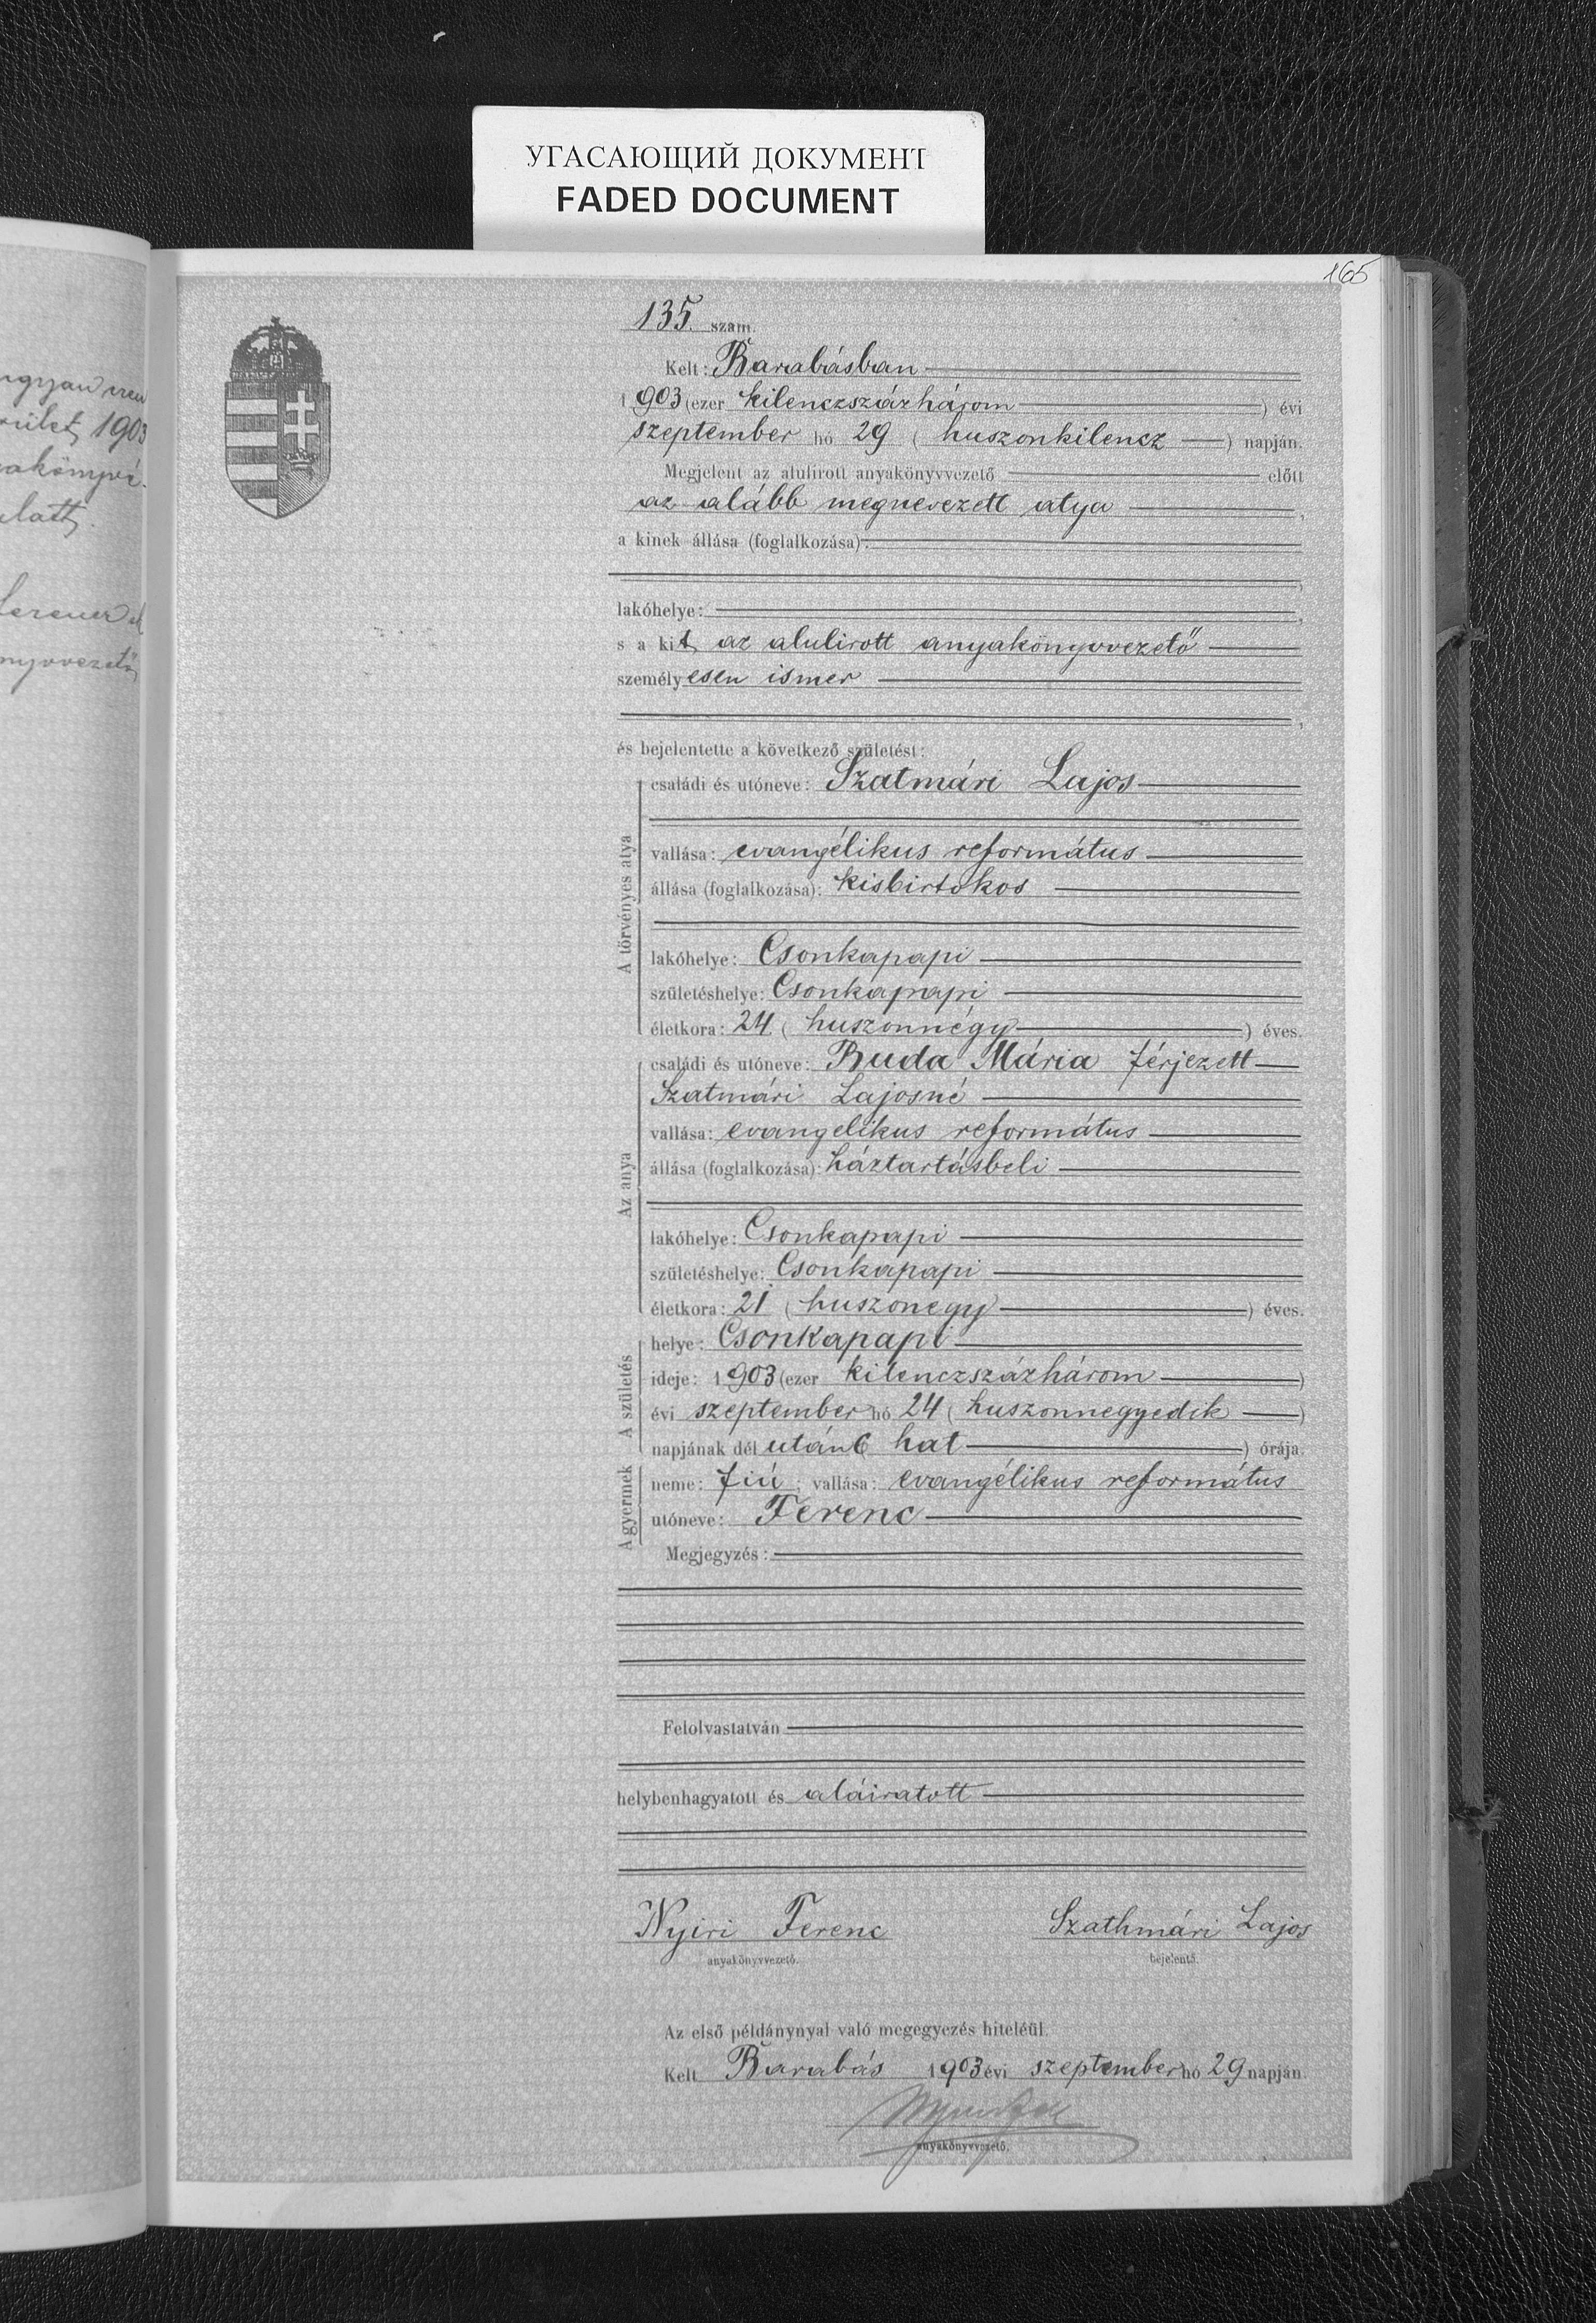 УГАСАЮЩИЙ ДОКУМЕНТ
FADED DOCUMENT
165
135. szám.
Kelt: Barabásban
1903 (ezer kilenczszázhárom) évi
szeptember hó 29 (huszonkilencz) napján.
Megjelent az alulirott anyakönyvvezető előtt
az alább megnevezett atya,
a kinek állása (foglalkozása):
,
lakóhelye: ,
s a kit az alulirott anyakönyvvezető
személyesen ismer
,
és bejelentette a következő születést:
A törvényes atya
családi és utóneve: Szatmári Lajos
vallása: evangélikus református
állása (foglalkozása): kisbirtokos
lakóhelye: Csonkapapi
születéshelye: Csonkapapi
életkora: 24 (huszonnégy) éves.
Az anya
családi és utóneve: Buda Mária férjezett
Szatmári Lajosné
vallása: evangelikus református
állása (foglalkozása): háztartásbeli
lakóhelye: Csonkapapi
születéshelye: Csonkapapi
életkora: 21 (huszonegy) éves.
A születés
helye: Csonkapapi
ideje: 1903 (ezer kilenczszázhárom)
évi szeptember hó 24 (huszonnegyedik)
napjának dél után 6 hat) órája.
A gyermek
neme: fiú; vallása: evangélikus református
utóneve: Ferenc
Megjegyzés:
Felolvastatván
helybenhagyatott és aláiratott
Nyiri Ferenc Szathmári Lajos
anyakönyvvezető. bejelentő.
Az első példánynyal való megegyezés hiteléül.
Kelt Barabás 1903 évi szeptember hó 29 napján.
anyakönyvvezető.